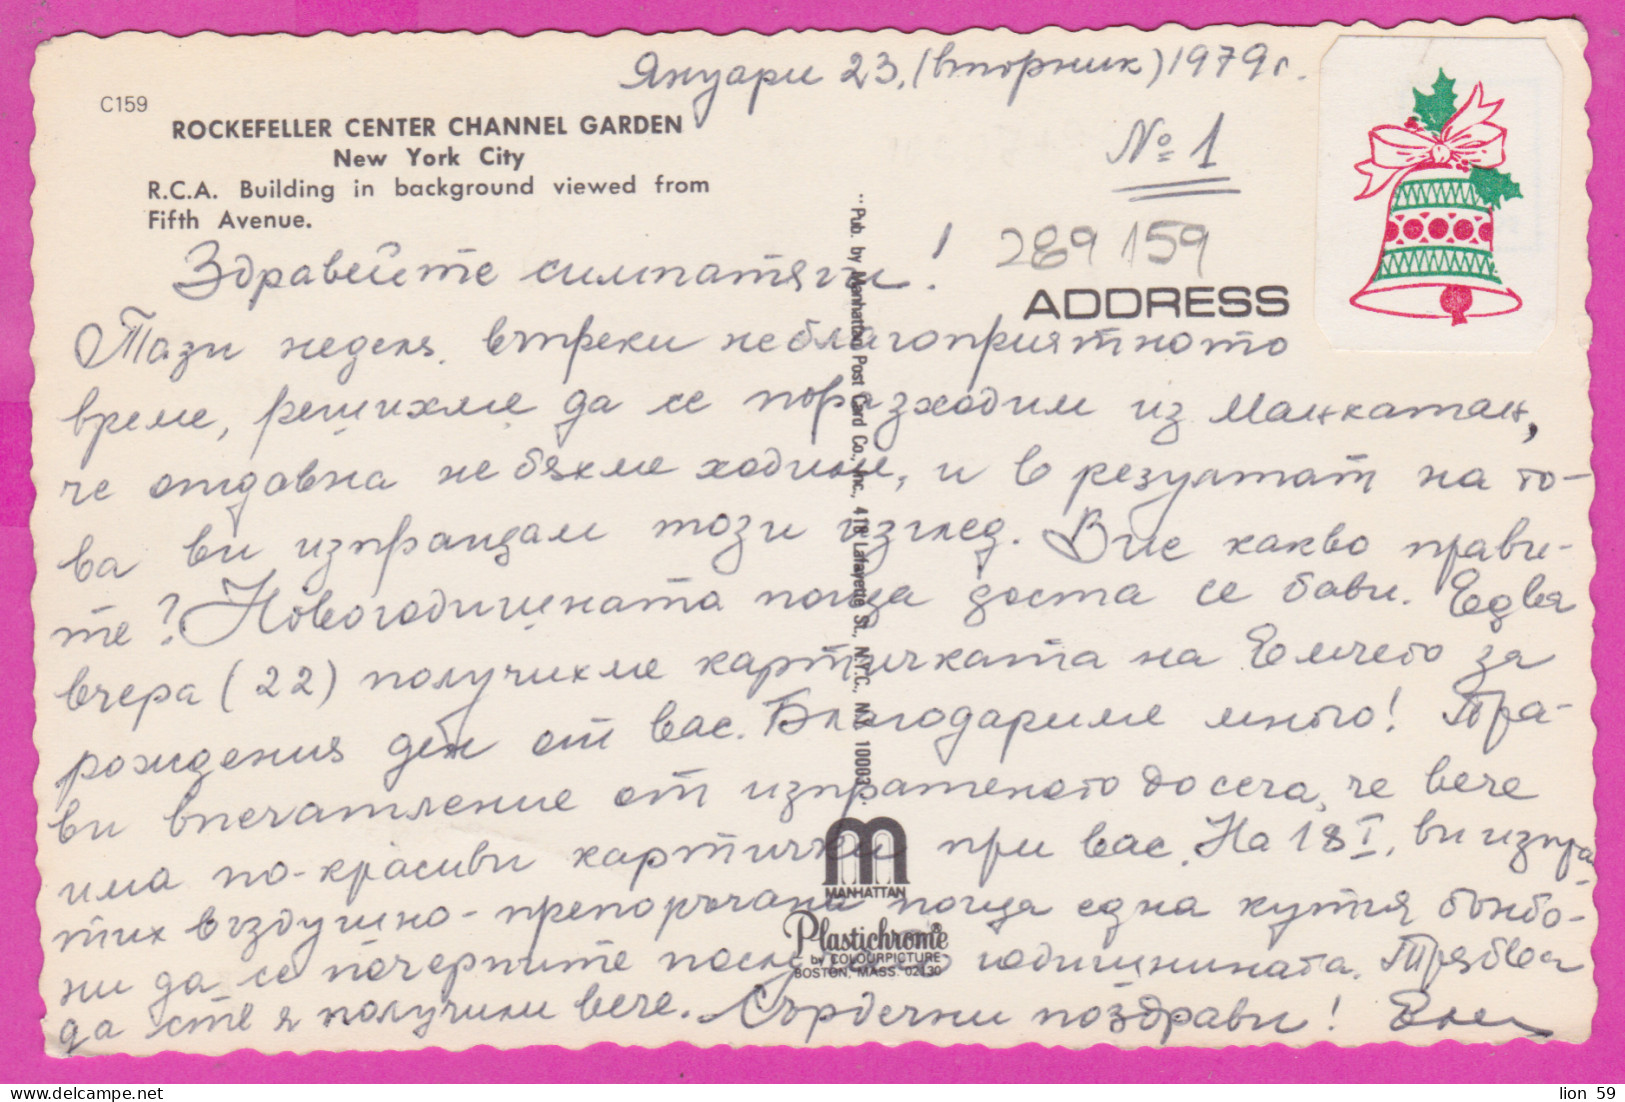 Януари 23, (вторник) 1979 г.
C159
ROCKEFELLER CENTER CHANNEL GARDEN
New York City
R.C.A. Building in background viewed from
Fifth Avenue.
№ 1
289 159
ADDRESS
Здравейте симпатяги!
Тази неделя, въпреки неблагоприятното
време, решихме да се поразходим из Манхатан,
че отдавна не бяхме ходили, и в резултат на то-
ва ви изпращам този изглед. Вие какво прави-
те? Новогодишната поща доста се бави. Едва
вчера (22) получихме картичката на Емчето за
рождения ден от вас. Благодариме много! Пра-
ви впечатление от изпратеното досега, че вече
има по-красиви картички при вас. На 18 I, ви изпра
тих въздушно-препоръчана поща една кутия бонбо-
ни да се почерпите по годишнината. Трябва
да сте я получили вече. Сърдечни поздрави!
"Pub. by Manhattan Post Card Co., Inc., 418 Lafayette St., N.Y.C., N.Y. 10003".
MANHATTAN
Plastichrome®
by COLOURPICTURE
BOSTON, MASS. 02130
lion 59